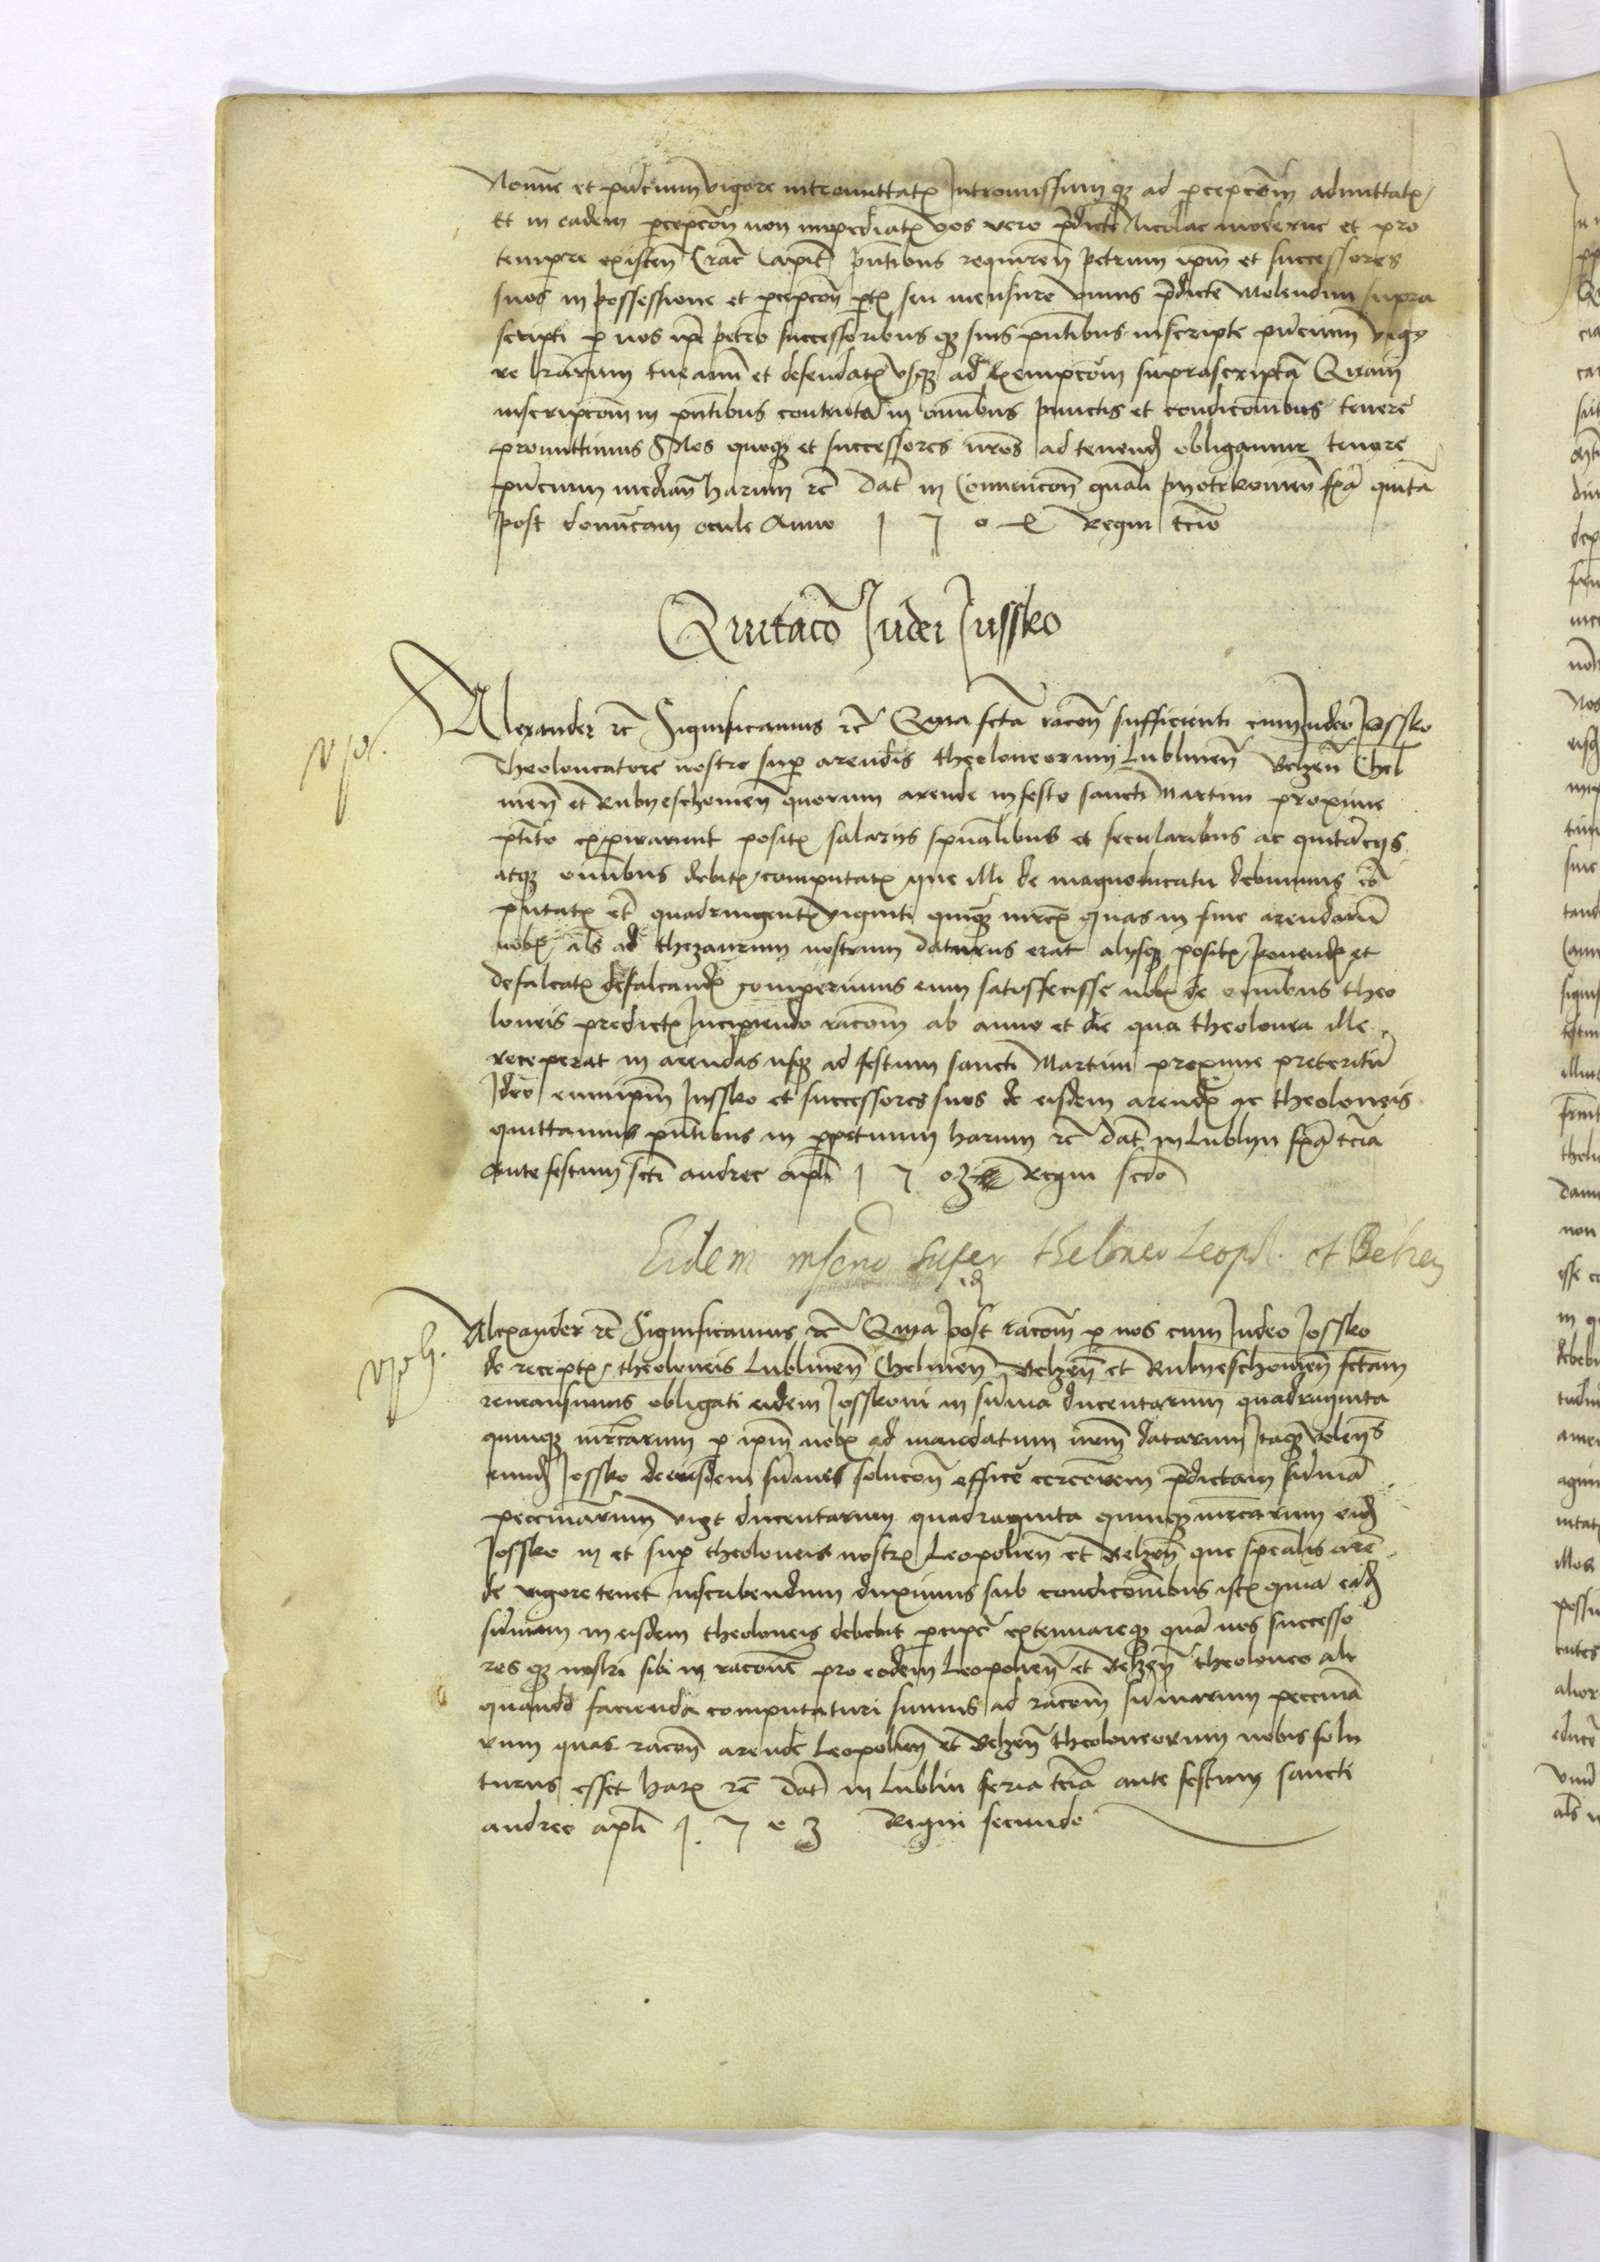 nomine et presencium vigore intromittatis Intromissumque ad percepcionem admittatis
Et in eadem percepcion non impediatis vos vero predicte Nicolae moderne et pro
tempore existen Crac Capit presentibus requiren petrum ipm et successores
suos in possessione et percepcion partis seu mensure unius predicte Molendini supra
scripti per nos ipi petro successoribusque suis presentibus inscripte presencium vigo
re lrarum tueamini et defendatis usque ad Exempcionem suprascriptam Quam
inscripcionem in presentibus contenta in omnibus punctis et condicionibus tenere
promittimus Nos quoque et successores nros ad tenend obligamur tenore
presencium median harum rc Dat in Convencion gnali piotrkovien fra quinta
post dominicam oculi Anno 1 5 0 4 Regni tcio
Quitacio Judei Jussko
Alexander rc Significamus rc Quia fcta racon sufficienti cum Judeo Jossko
Theoloneatore nostro super arendis theoloneorum Lublinen Belzen Chel
men et Rubyeschowien quorum arende in festo sancti Martini proxime
ptito expirarunt positis salariis spualibus et secularibus ac quitanciis
atque omnibus debitis computatis que illi de magnoducatu debuimus com
putatis etc quadringentis viginti quinque mrcis quas in fine arendarum
nobis als ad thezaurum nostrum daturus erat aliisque positis ponendis et
defalcatis defalcandis comperimus eum satisfecisse nobis de omnibus theo
loneis predictis Incipiendo racom ab anno et die qua theolonea ille
receperat in arendas usque ad festum sancti Martini proxime preteritum
Ideo eundem ipm Jussko et successores suos de eisdem arendis ac theoloneis
quittamus presentibus in perpetuum harum rc Dat in Lublyn fra tcia
ante festum scti andree apli 1 5 03 Regni scdo
Eidem inscrio super theloneo Leopol. et Belzen
Alexander rc Significamus rc Quia post racom per nos cum Judeo Jossko
de receptis theoloneis Lublinen Chelmen Belzen et Rubyeschowien fctam
remansimus obligati eidem Josskoni in summa ducentarum quadraginta
quinque mrcarum per ipm nobis ad mandatum nrm datarum Itaque volens
eund Jossko de eiusdem summe solucon efficere cerciorem predictam summam
pecuniarum vigt ducentarum quadraginta quinque mrcarum eid
Jossko in et super theoloneis nostris Leopolien et Belzen que specialis aren
de vigore tenet inscribendum duximus sub condicionibus istis quia eand
summam in eisdem theoloneis debebit percipere extenuareque quam nos successo
resque nostri sibi in racone pro eodem Leopolien et Belzen theoloneo ali
quando facienda computaturi sumus ad racom summarum pecunia
rum quas racon arende Leopolien et Belzen theoloneorum nobis solu
turus esset haris rc Dat in Lublin feria tcia ante festum sancti
andree apli 1 5 0 3 Regni secundo